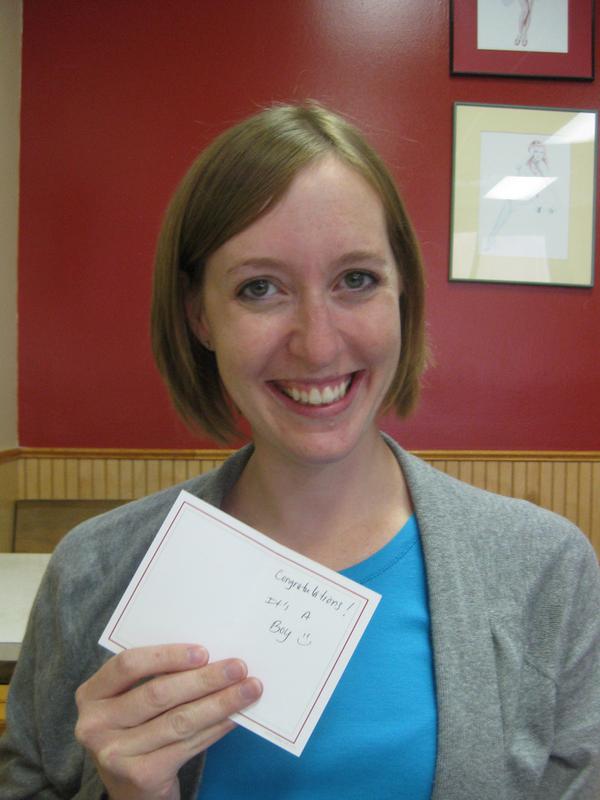 Congratulations!
It's A
Boy